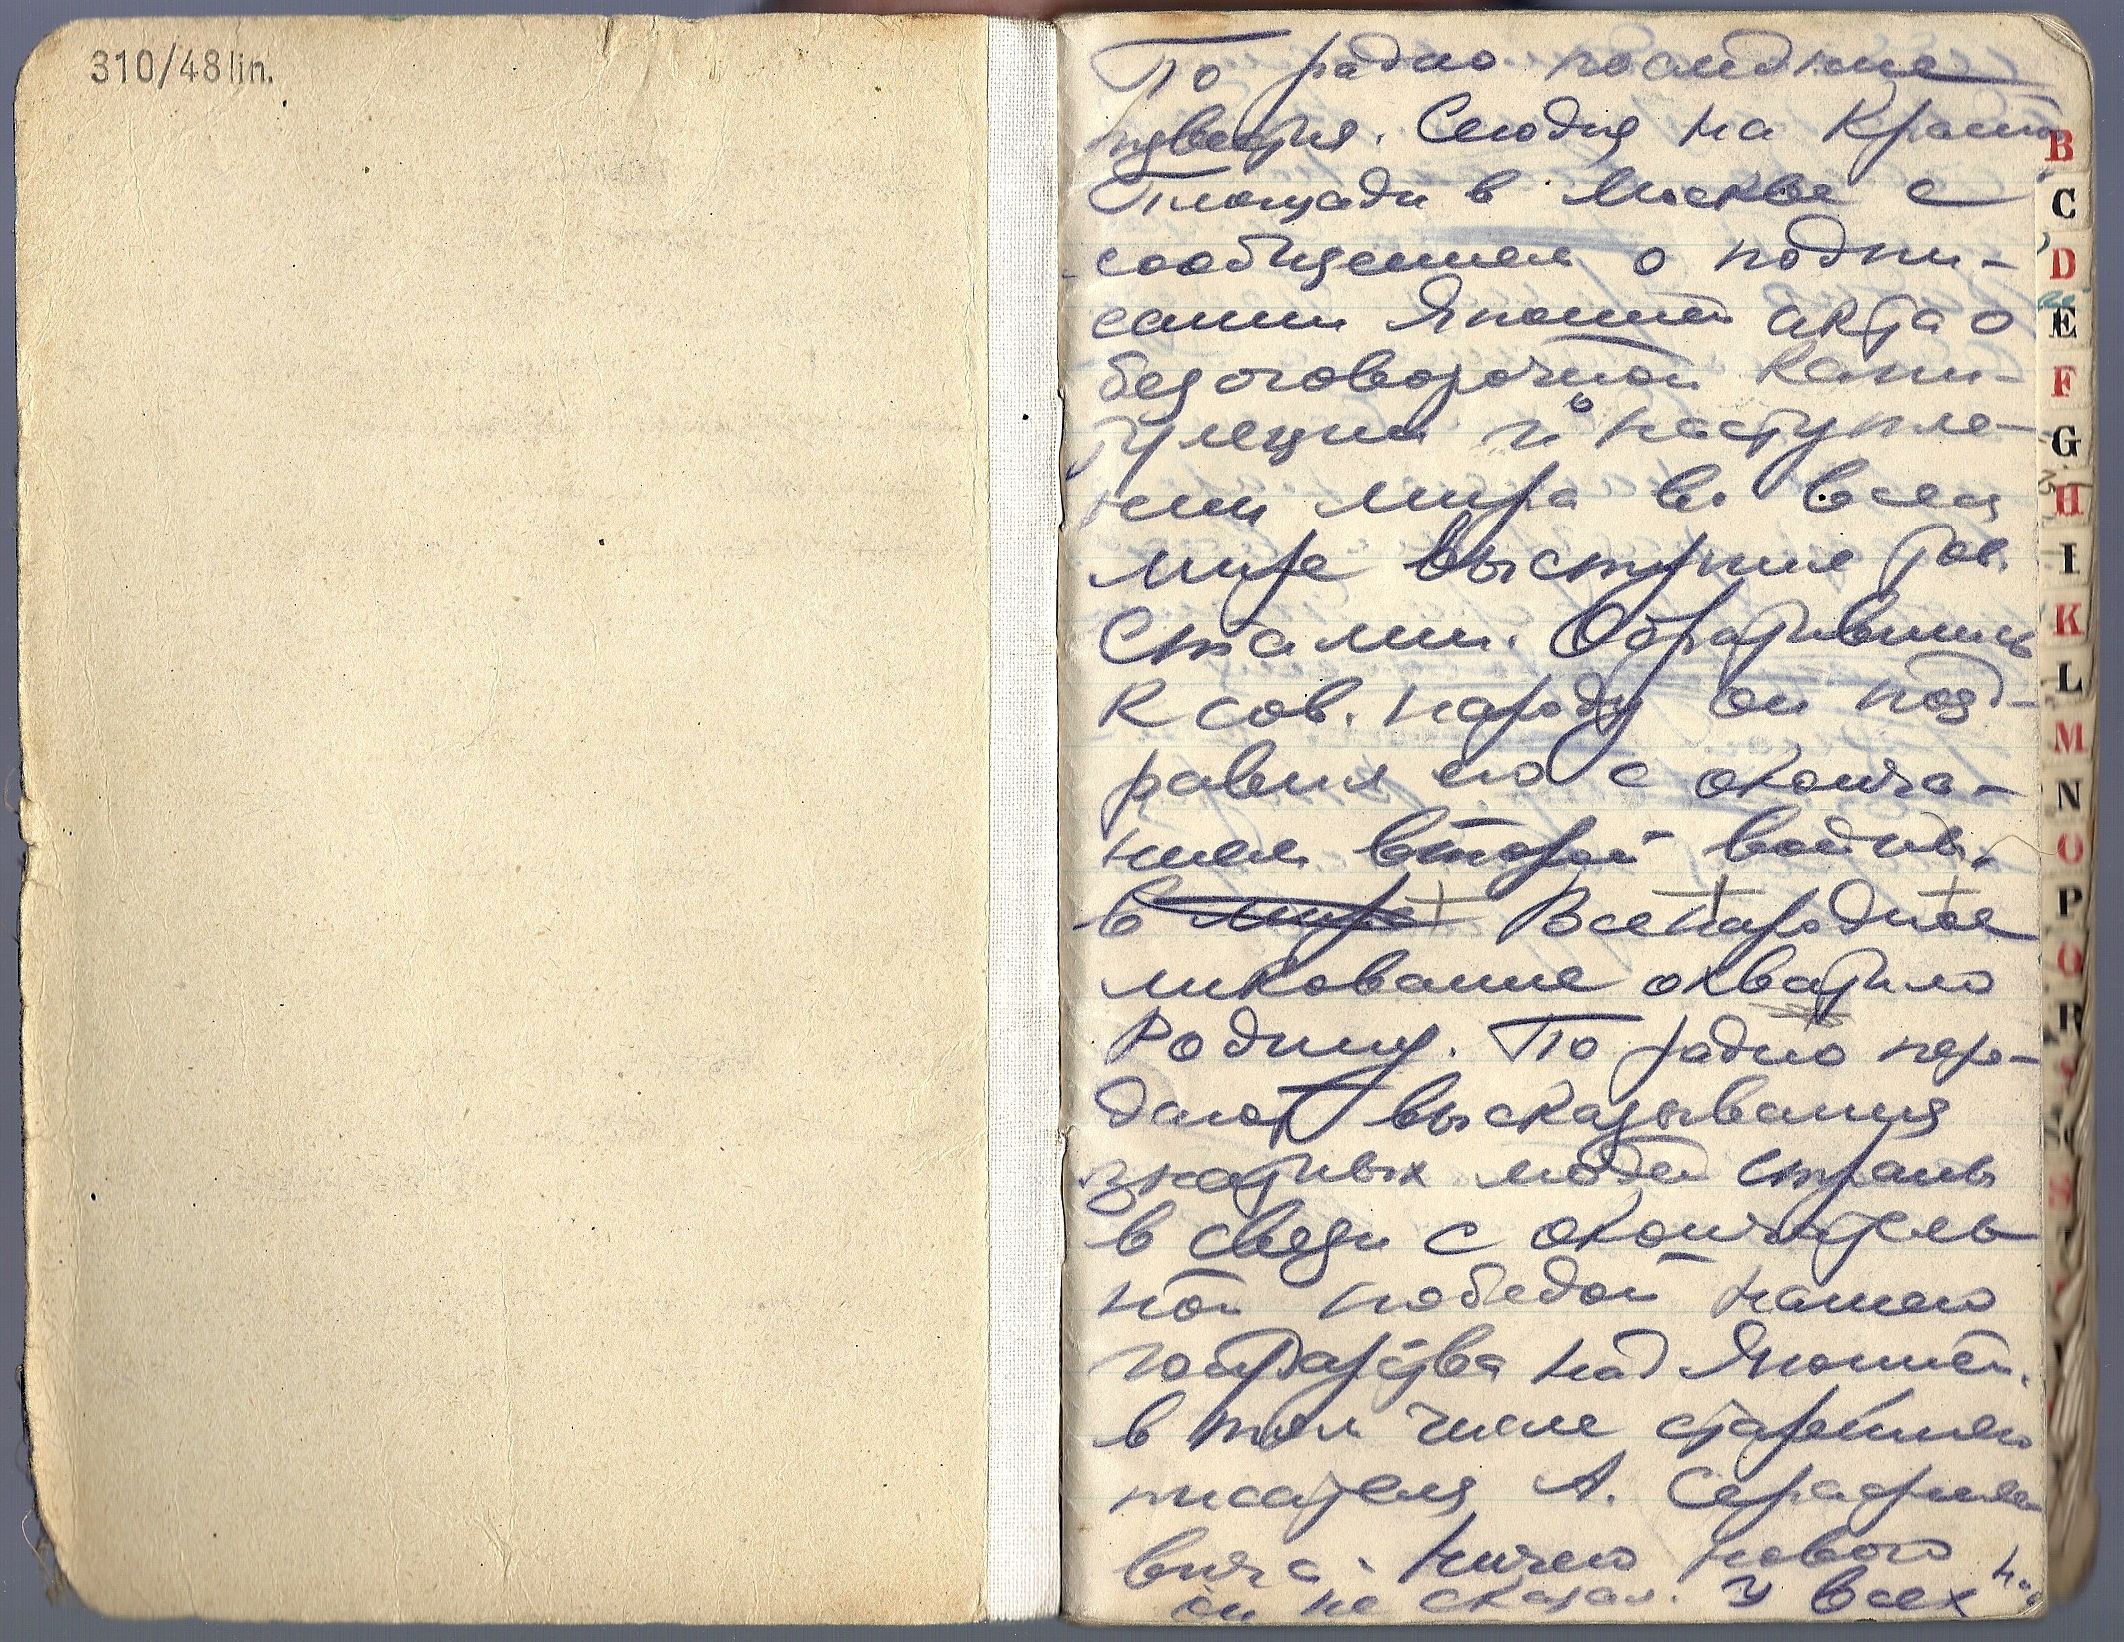 310/48 lin.
По радио последние
известия. Сегодня на Красной
Площади в Москве с
сообщением о подпи-
сании Японией акта о
безоговорочной капи-
туляции и о наступле-
нии мира во всем
мире выступил тов.
Сталин. Обратившись
к сов. народу он позд-
равил его с оконча-
нием второй войны
в мире Всенародное
ликование охватило
Родину. По радио пере-
дают высказывания
знатных людей страны
в связи с окончатель
ной победой нашего
государства над Японией.
в том числе старейшего
писателя А. Серафимо
вича. Ничего нового
он не сказал. У всех на
B
C
D
E
F
G
H
I
K
L
M
N
O
P
Q
R
S